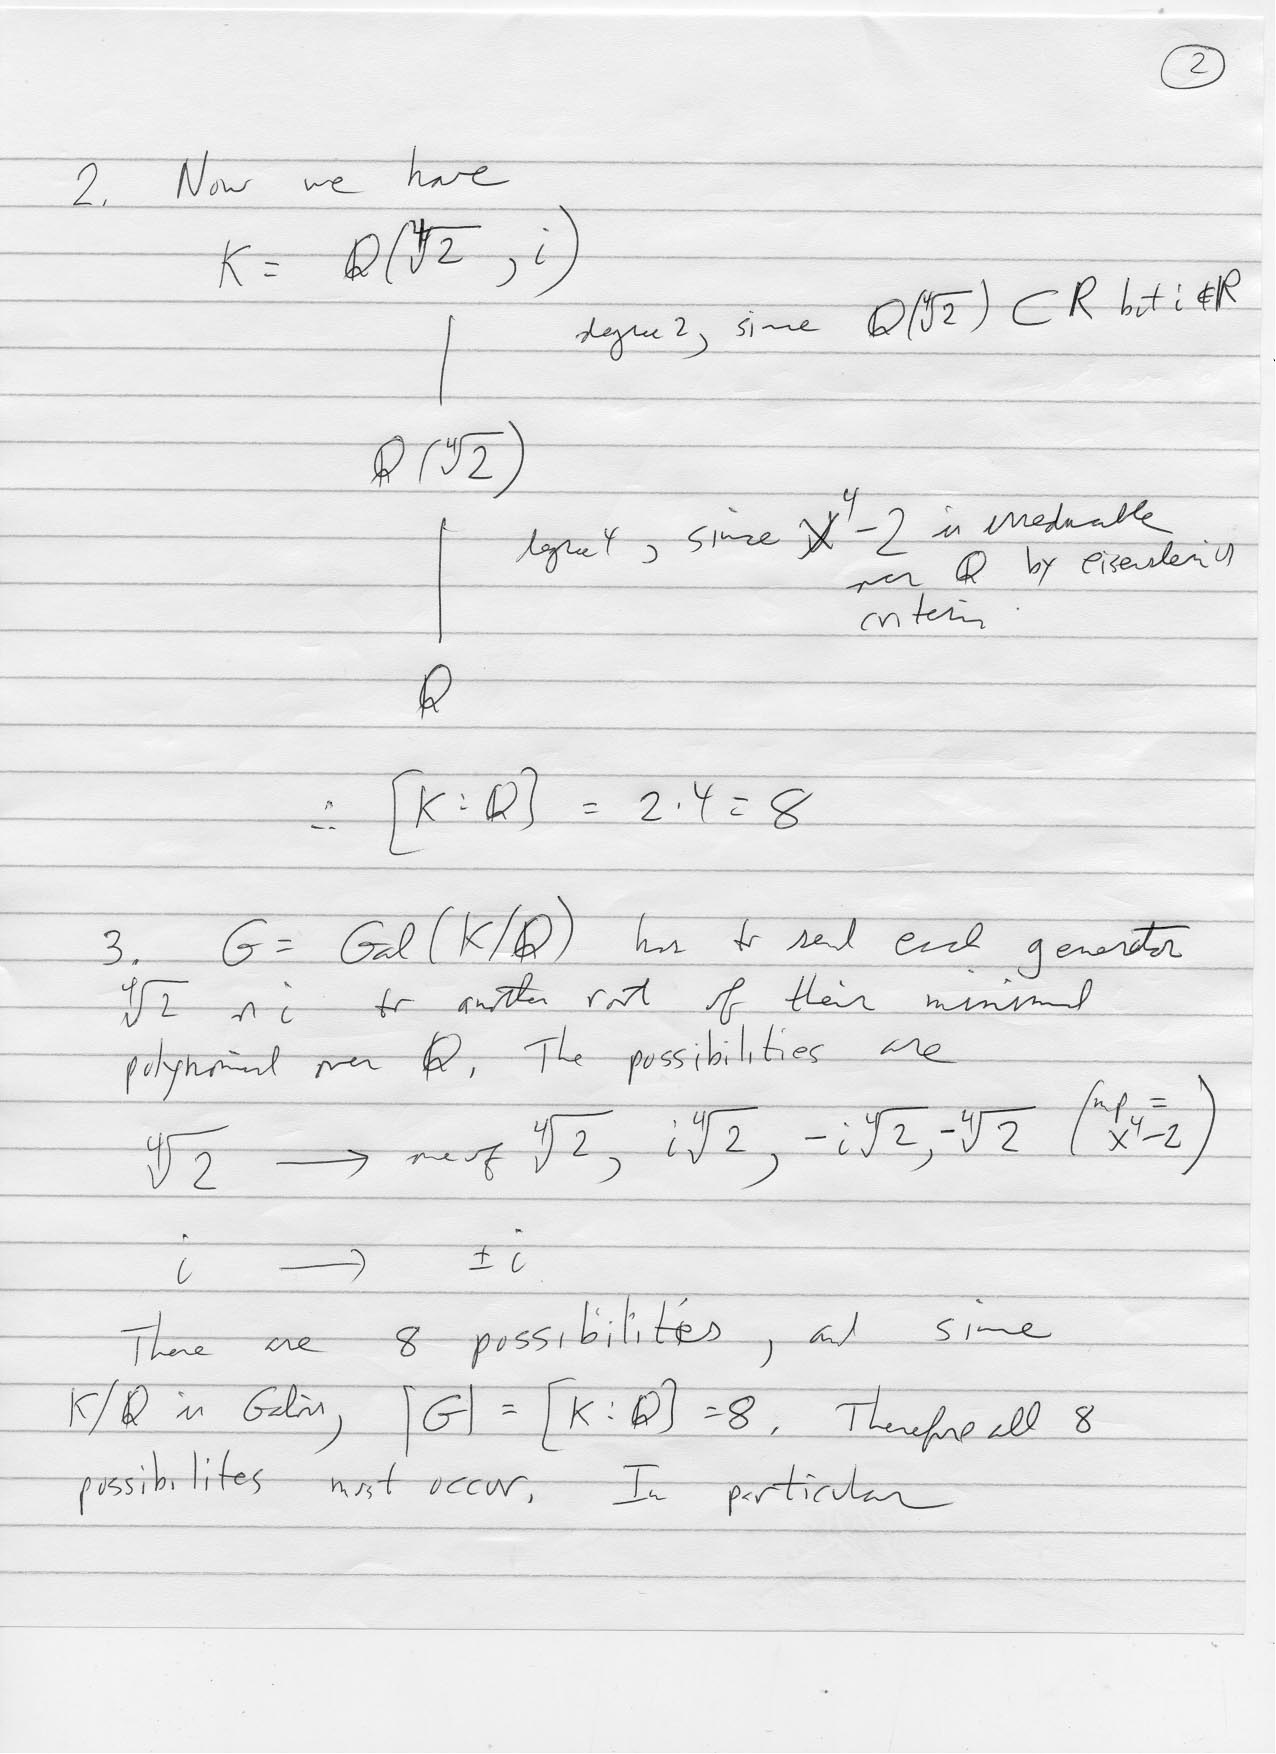 2
2. Now we have
K = Q(∜2, i)
degree 2, since Q(∜2) ⊂ R but i ∉ R
Q(∜2)
degree 4, since x⁴-2 is irreducible
over Q by eisenstein's
criterion.
Q
∴ [K:Q] = 2·4 = 8
3. G = Gal(K/Q) has to send each generator
∜2 or i to another root of their minimal
polynomial over Q. The possibilities are
∜2 → one of ∜2, i∜2, -i∜2, -∜2 (mp = x⁴-2)
i → ±i
There are 8 possibilities, and since
K/Q is Galois, |G| = [K:Q] = 8. Therefore all 8
possibilites must occur. In particular